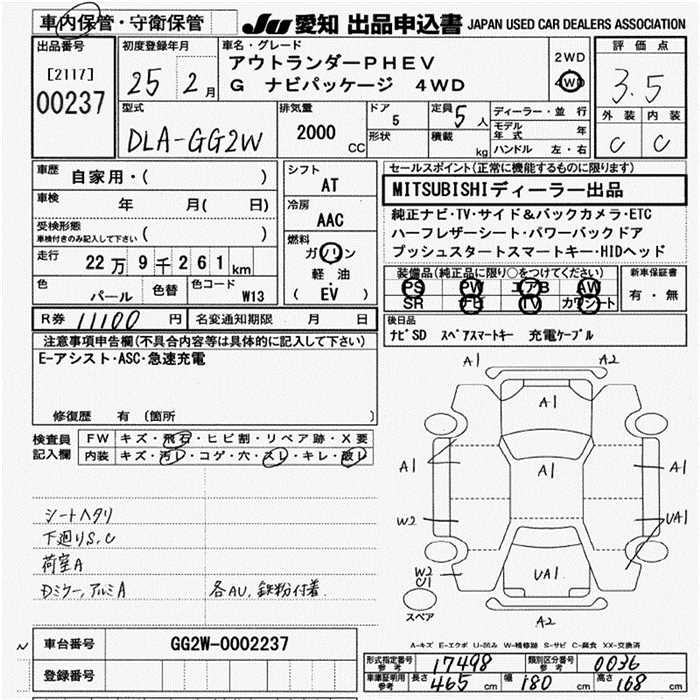 車内保管・守衛保管 JU 愛知 出品申込書 JAPAN USED CAR DEALERS ASSOCIATION
出品番号 初度登録年月 車名・グレード 評価点
[2117] 25 2月 アウトランダーPHEV 2WD
00237 G ナビパッケージ 4WD 4WD 3.5
型式 排気量 ドア 5 定員 5人 ディーラー・並行 外装 内装
DLA-GG2W 2000 CC 形状 積載 kg モデル年式 年 C C
ハンドル 左・右
車歴 自家用・( ) シフト AT セールスポイント(正常に機能するものに限ります)
車検 年 月( 日) 冷房 AAC MITSUBISHIディーラー出品
受検形態 純正ナビ・TV・サイド&バックカメラ・ETC
車検付きのみ記入して下さい ( ) 燃料 ハーフレザーシート・パワーバックドア
走行 22万9千261km ガソリン プッシュスタートスマートキー・HIDヘッド
軽油 装備品(純正品に限り○をつけてください) 新車保証書
色 パール 色替 色コード W13 ( EV ) PS PW エアB AW 有・無
SR ナビ TV カワシート
R券 11100 円 名変通知期限 月 日 後日品
注意事項申告欄(不具合内容等は具体的に記入して下さい) ナビSD スペアスマートキー 充電ケーブル
E-アシスト・ASC・急速充電
修復歴 有 (箇所 )
検査員 FW キズ・飛石・ヒビ割・リペア跡・X要
記入欄 内装 キズ・汚レ・コゲ・穴・スレ・キレ・破レ
A1 A2
A1
A1 A1 A1
W2 UA1
W2
U1 UA1
スペア A2
シートヘタリ
下廻りS,C
荷室A
Dミラー,アルミA 各AU,鉄粉付着.
A-キズ E-エクボ U-凹み W-補修跡 S-サビ C-腐食 XX-交換済
車台番号 GG2W-0002237
登録番号
形式指定番号 参考 17498 類別区分番号 参考 0036
車庫証明用 参考 長さ 465 cm 幅 180 cm 高さ 168 cm